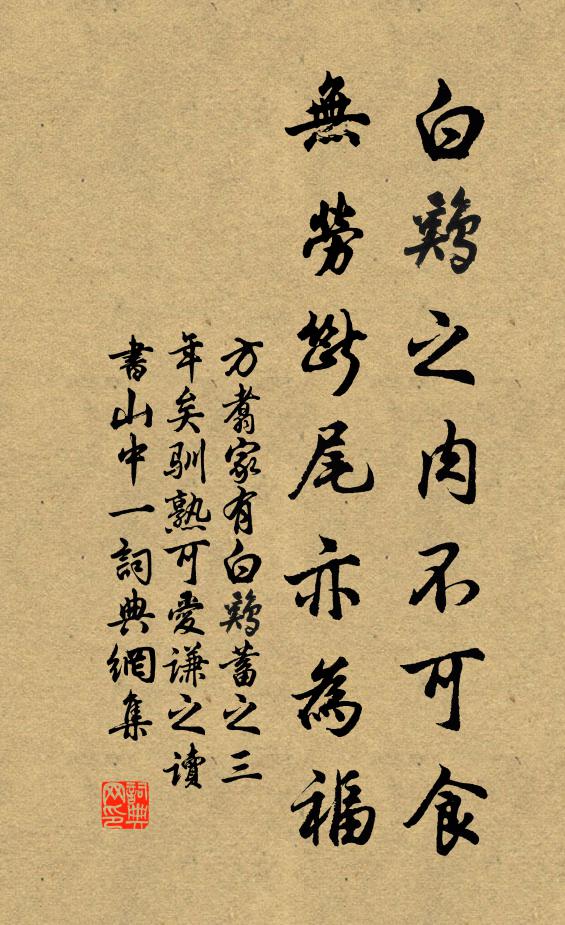 白鷄之肉不可食
無勞斷尾亦為福
方翥家有白鷄蓄之三
年矣馴熟可愛謙之读
書山中一詞典網集
詞典
网印